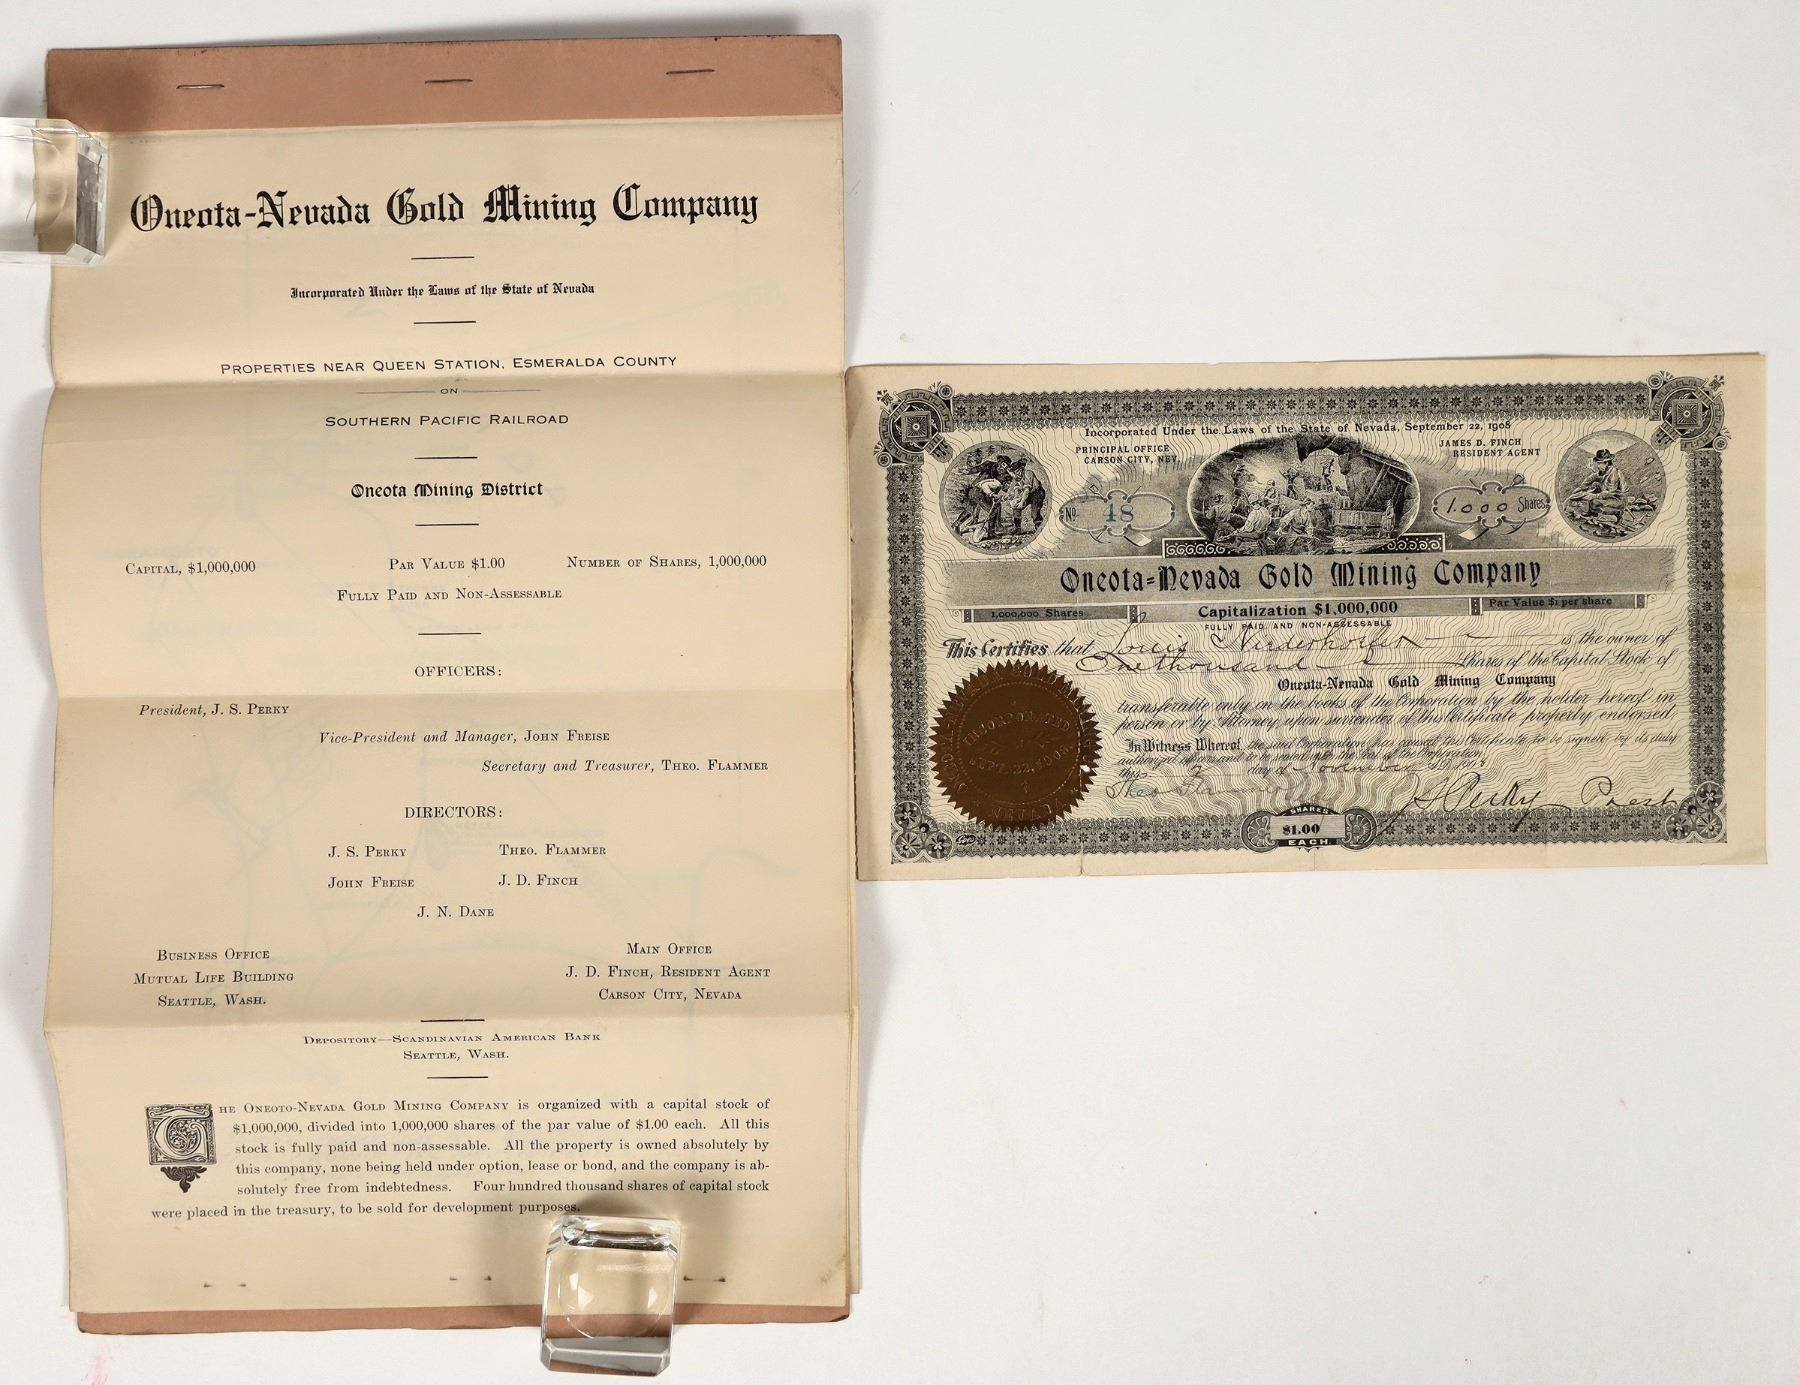 Oneota-Nevada Gold Mining Company
Incorporated Under the Laws of the State of Nevada
PROPERTIES NEAR QUEEN STATION, ESMERALDA COUNTY
ON
SOUTHERN PACIFIC RAILROAD
Oneota Mining District
CAPITAL, $1,000,000 PAR VALUE $1.00 NUMBER OF SHARES, 1,000,000
FULLY PAID AND NON-ASSESSABLE
OFFICERS:
President, J. S. PERKY
Vice-President and Manager, JOHN FREISE
Secretary and Treasurer, THEO. FLAMMER
DIRECTORS:
J. S. PERKY THEO. FLAMMER
JOHN FREISE J. D. FINCH
J. N. DANE
BUSINESS OFFICE
MUTUAL LIFE BUILDING
SEATTLE, WASH.
MAIN OFFICE
J. D. FINCH, RESIDENT AGENT
CARSON CITY, NEVADA
DEPOSITORY—SCANDINAVIAN AMERICAN BANK
SEATTLE, WASH.
THE ONEOTO-NEVADA GOLD MINING COMPANY is organized with a capital stock of
$1,000,000, divided into 1,000,000 shares of the par value of $1.00 each. All this
stock is fully paid and non-assessable. All the property is owned absolutely by
this company, none being held under option, lease or bond, and the company is ab-
solutely free from indebtedness. Four hundred thousand shares of capital stock
were placed in the treasury, to be sold for development purposes.
Incorporated Under the Laws of the State of Nevada, September 22, 1908
PRINCIPAL OFFICE
CARSON CITY, NEV.
JAMES D. FINCH
RESIDENT AGENT
No. 18
1,000 Shares
Oneota-Nevada Gold Mining Company
1,000,000 Shares Capitalization $1,000,000 Par Value $1 per share
FULLY PAID AND NON-ASSESSABLE
This Certifies that Louis Niederhofer is the owner of
One thousand Shares of the Capital Stock of
Oneota-Nevada Gold Mining Company
transferable only on the books of the Corporation by the holder hereof in
person or by Attorney upon surrender of this Certificate properly endorsed.
In Witness Whereof, the said Corporation has caused this Certificate to be signed by its duly
authorized officers and to be sealed with the Seal of the Corporation
this day of November A.D. 1908
Theo Flammer
J S Perky Prest
INCORPORATED
SEPT. 22, 1908
NEVADA
SHARES
$1.00
EACH